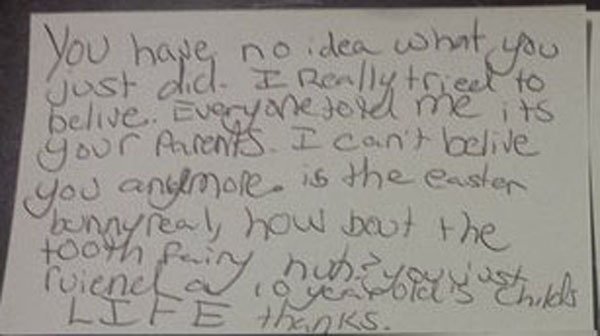 You have no idea what you
just did. I Really tried to
belive. Everyone told me its
your Parents. I can't belive
you anymore. is the easter
bunny real, how bout the
tooth fairy huh? you just
ruiened a 10 year old's childs
LIFE thanks.